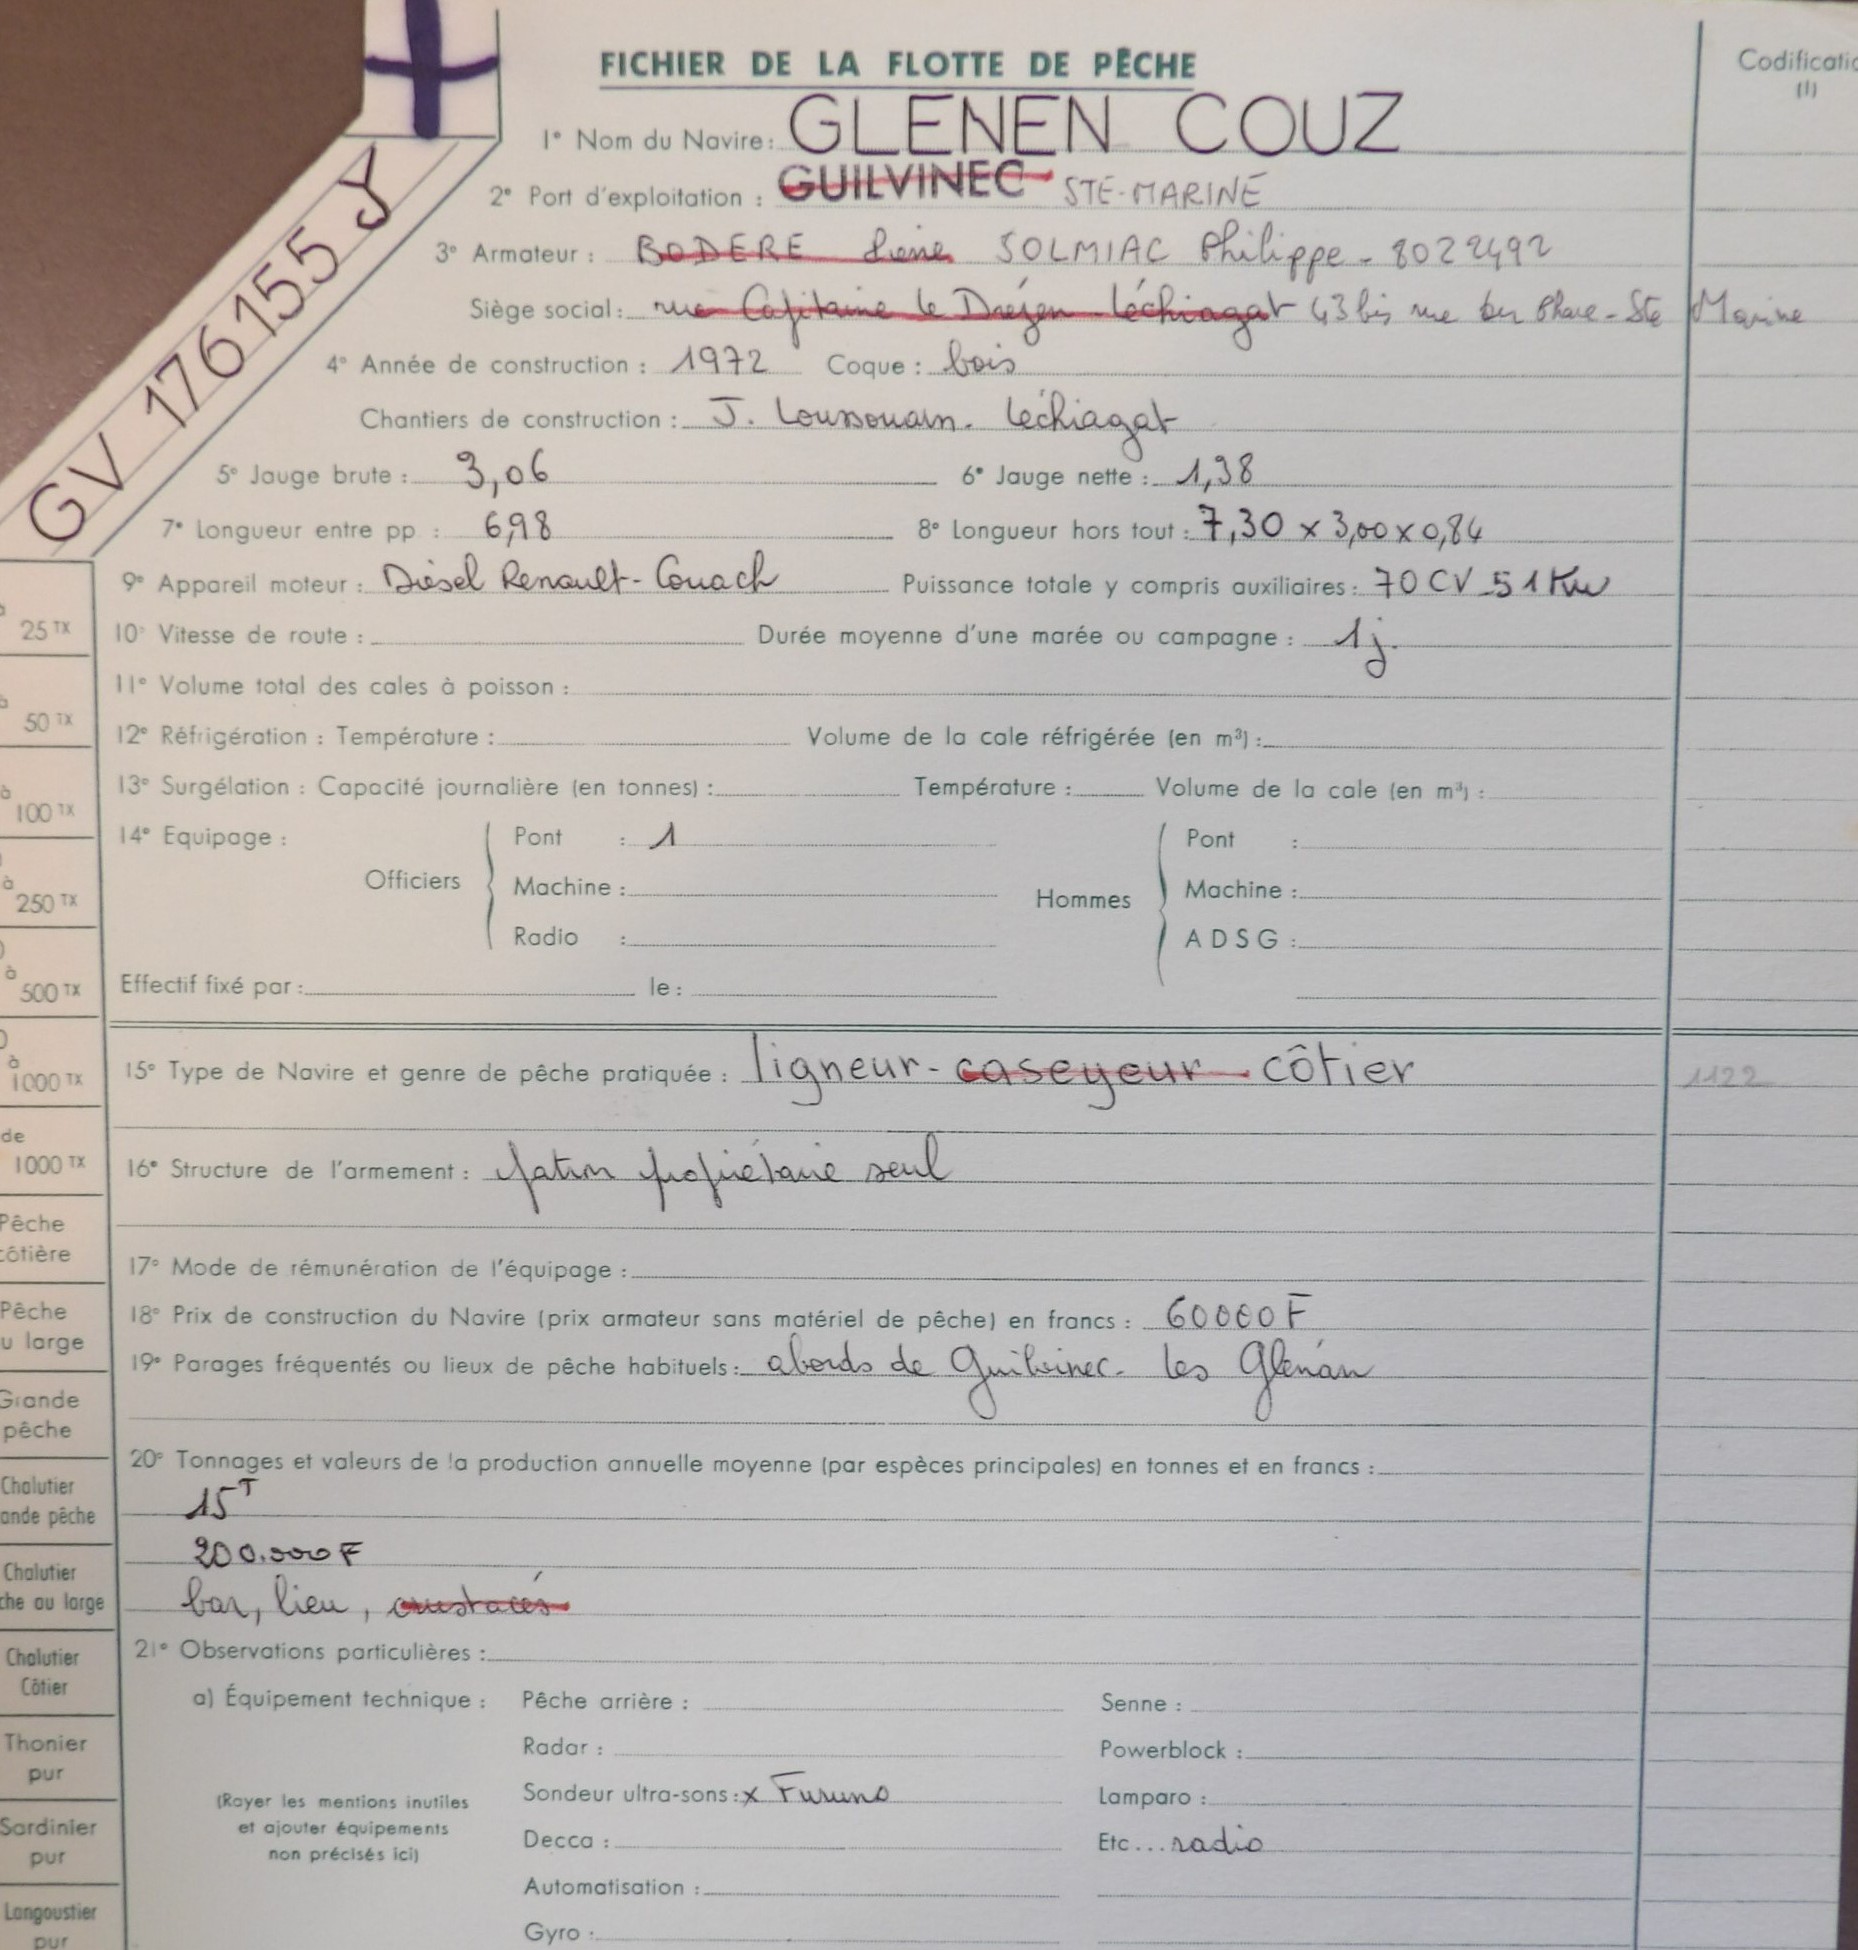 FICHIER DE LA FLOTTE DE PÊCHE
Codificatio
(1)
GV 176155 Y
1° Nom du Navire : GLENEN COUZ
2° Port d'exploitation : GUILVINEC STE-MARINE
3° Armateur : BODERE SOLMIAC Philippe - 8022492
Siège social : rue Capitaine le Drézen - Léchiagat 43 bis rue du Phare - Ste Marine
4° Année de construction : 1972 Coque : bois
Chantiers de construction : J. Loussouarn. Léchiagat
5° Jauge brute : 3,06 6° Jauge nette : 1,38
7° Longueur entre pp : 6,98 8° Longueur hors tout : 7,30 x 3,00 x 0,84
9° Appareil moteur : Diésel Renault-Couach Puissance totale y compris auxiliaires : 70 CV - 51 Kw
10° Vitesse de route : Durée moyenne d'une marée ou campagne : 1 j.
11° Volume total des cales à poisson :
12° Réfrigération : Température : Volume de la cale réfrigérée (en m³) :
13° Surgélation : Capacité journalière (en tonnes) : Température : Volume de la cale (en m³) :
14° Equipage :
Officiers
Pont : 1
Machine :
Radio :
Hommes
Pont :
Machine :
A D S G :
Effectif fixé par : le :
15° Type de Navire et genre de pêche pratiquée : ligneur - caseyeur - côtier 1122
16° Structure de l'armement : patron propriétaire seul
17° Mode de rémunération de l'équipage :
18° Prix de construction du Navire (prix armateur sans matériel de pêche) en francs : 60000 F
19° Parages fréquentés ou lieux de pêche habituels : abords de Guilvinec - les Glénan
20° Tonnages et valeurs de la production annuelle moyenne (par espèces principales) en tonnes et en francs :
15 T
200.000 F
bar, lieu, crustacés
21° Observations particulières :
a) Équipement technique :
(Rayer les mentions inutiles
et ajouter équipements
non précisés ici)
Pêche arrière :
Radar :
Sondeur ultra-sons : x Furuno
Decca :
Automatisation :
Gyro :
Senne :
Powerblock :
Lamparo :
Etc... radio
25 TX
à
50 TX
à
100 TX
à
250 TX
à
500 TX
à
1000 TX
de
1000 TX
Pêche
côtière
Pêche
u large
Grande
pêche
Chalutier
ande pêche
Chalutier
che au large
Chalutier
Côtier
Thonier
pur
Sardinier
pur
Langoustier
pur